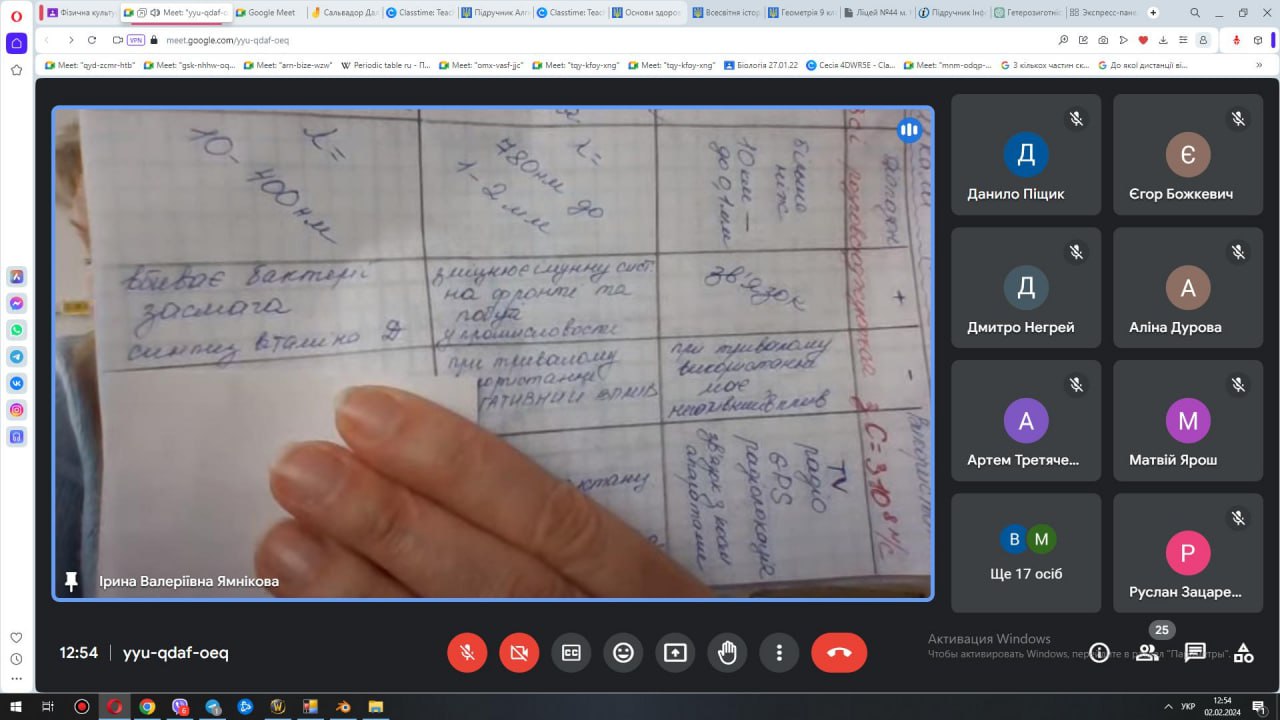 Фізична культур
Meet: "yyu-qdaf-o
Google Meet
Сальвадор Дал
Classtime: Teac
Підручник Алг
Classtime: Teac
Основи здоров
Всесвітня
Геометрія 9 кл
Гетерозиготно
Экспресс-пане
VPN
meet.google.com/yyu-qdaf-oeq
Meet: "qyd-zcmr-htb"
Meet: "gsk-nhhw-oq...
Meet: "arn-bize-wzw"
Periodic table ru - П...
Meet: "omx-vasf-jjc"
Meet: "tqy-kfoy-xng"
Meet: "tqy-kfoy-xng"
Біологія 27.01.22
Сесія 4DWR5E - Cla...
Meet: "mnm-odqp-...
З кількох частин ск...
До якої дистанції ві...
λ=
10-
400нм
λ=
780нм до
1-2мм
більше
ніж
10км –
до 0,1мм
вбиває бактерії
засмага
синтез вітаміна Д
зміцнює імунну сист.
на фронте та
побуті
у промисловости
зв'язок
+
-
при тривалому
при тривалому
використанні
має
негативний вплив
TV
радіо
GPS
радіолокація
C=3·10⁸ м/с
Ірина Валеріївна Ямнікова
Д
Данило Піщик
Є
Єгор Божкевич
Д
Дмитро Негрей
А
Аліна Дурова
А
Артем Третяче...
М
Матвій Ярош
В М
Ще 17 осіб
Р
Руслан Зацаре...
12:54 | yyu-qdaf-oeq
25
Активация Windows
Чтобы активировать Windows, перейдите в раздел "Параметры".
УКР
12:54
02.02.2024